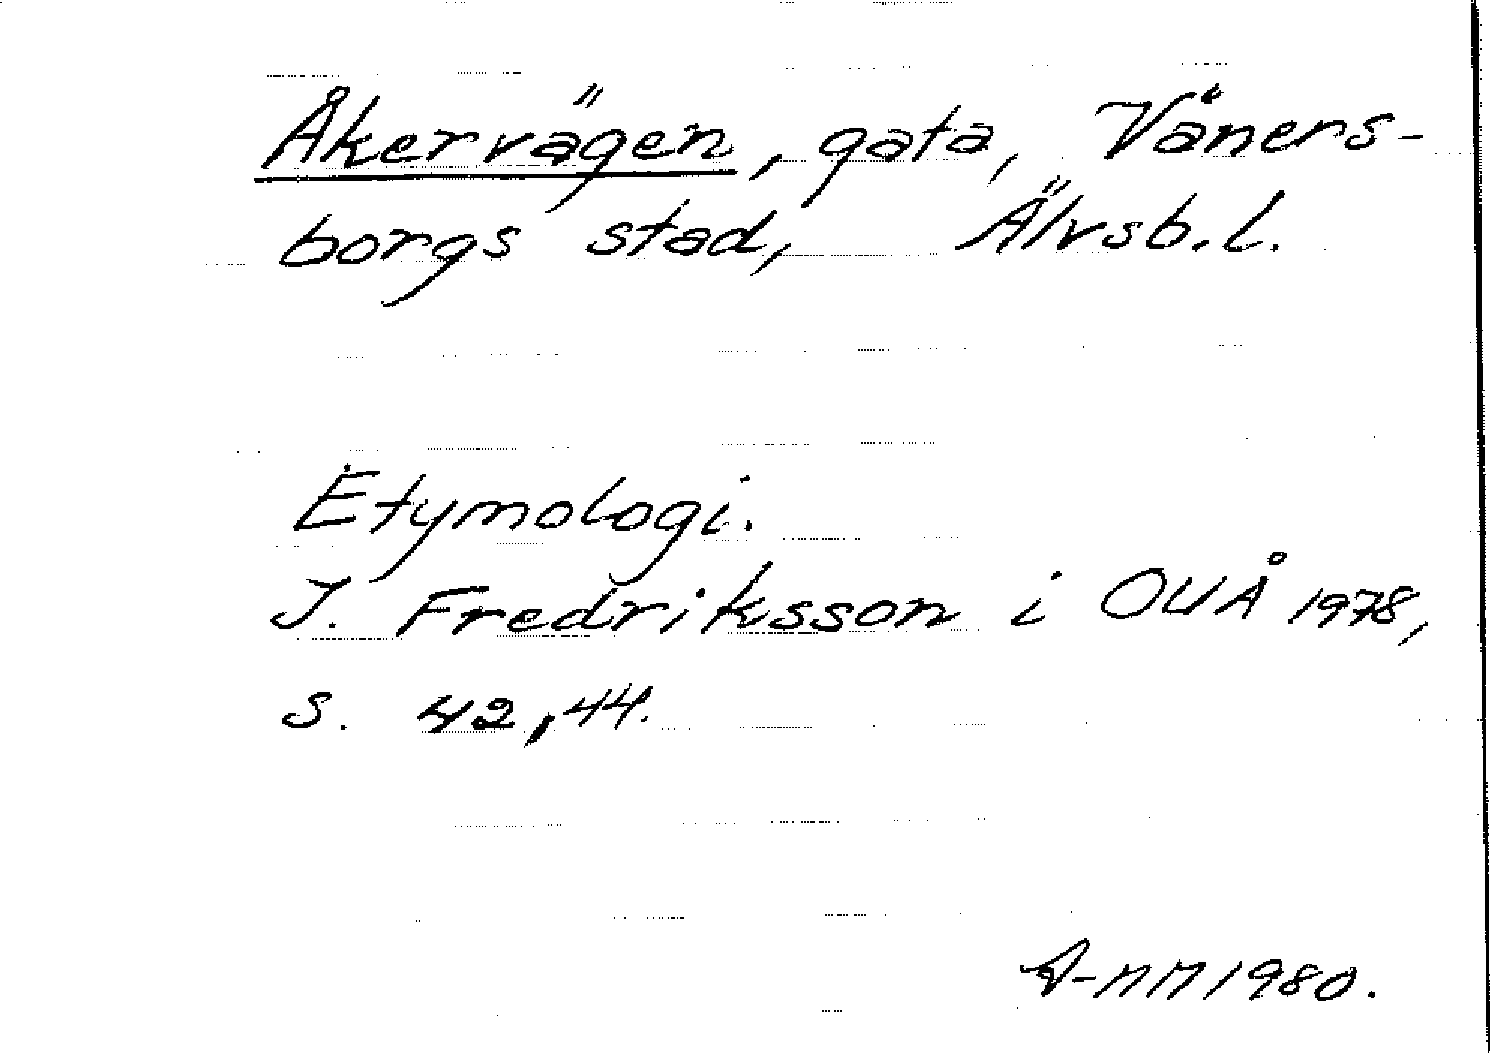 Åkervägen, gata, Väners-
borgs stad, Älvsb.l.
Etymologi.
I. Fredriksson i OUÅ 1978,
s. 42, 44.
A-MM 1980.